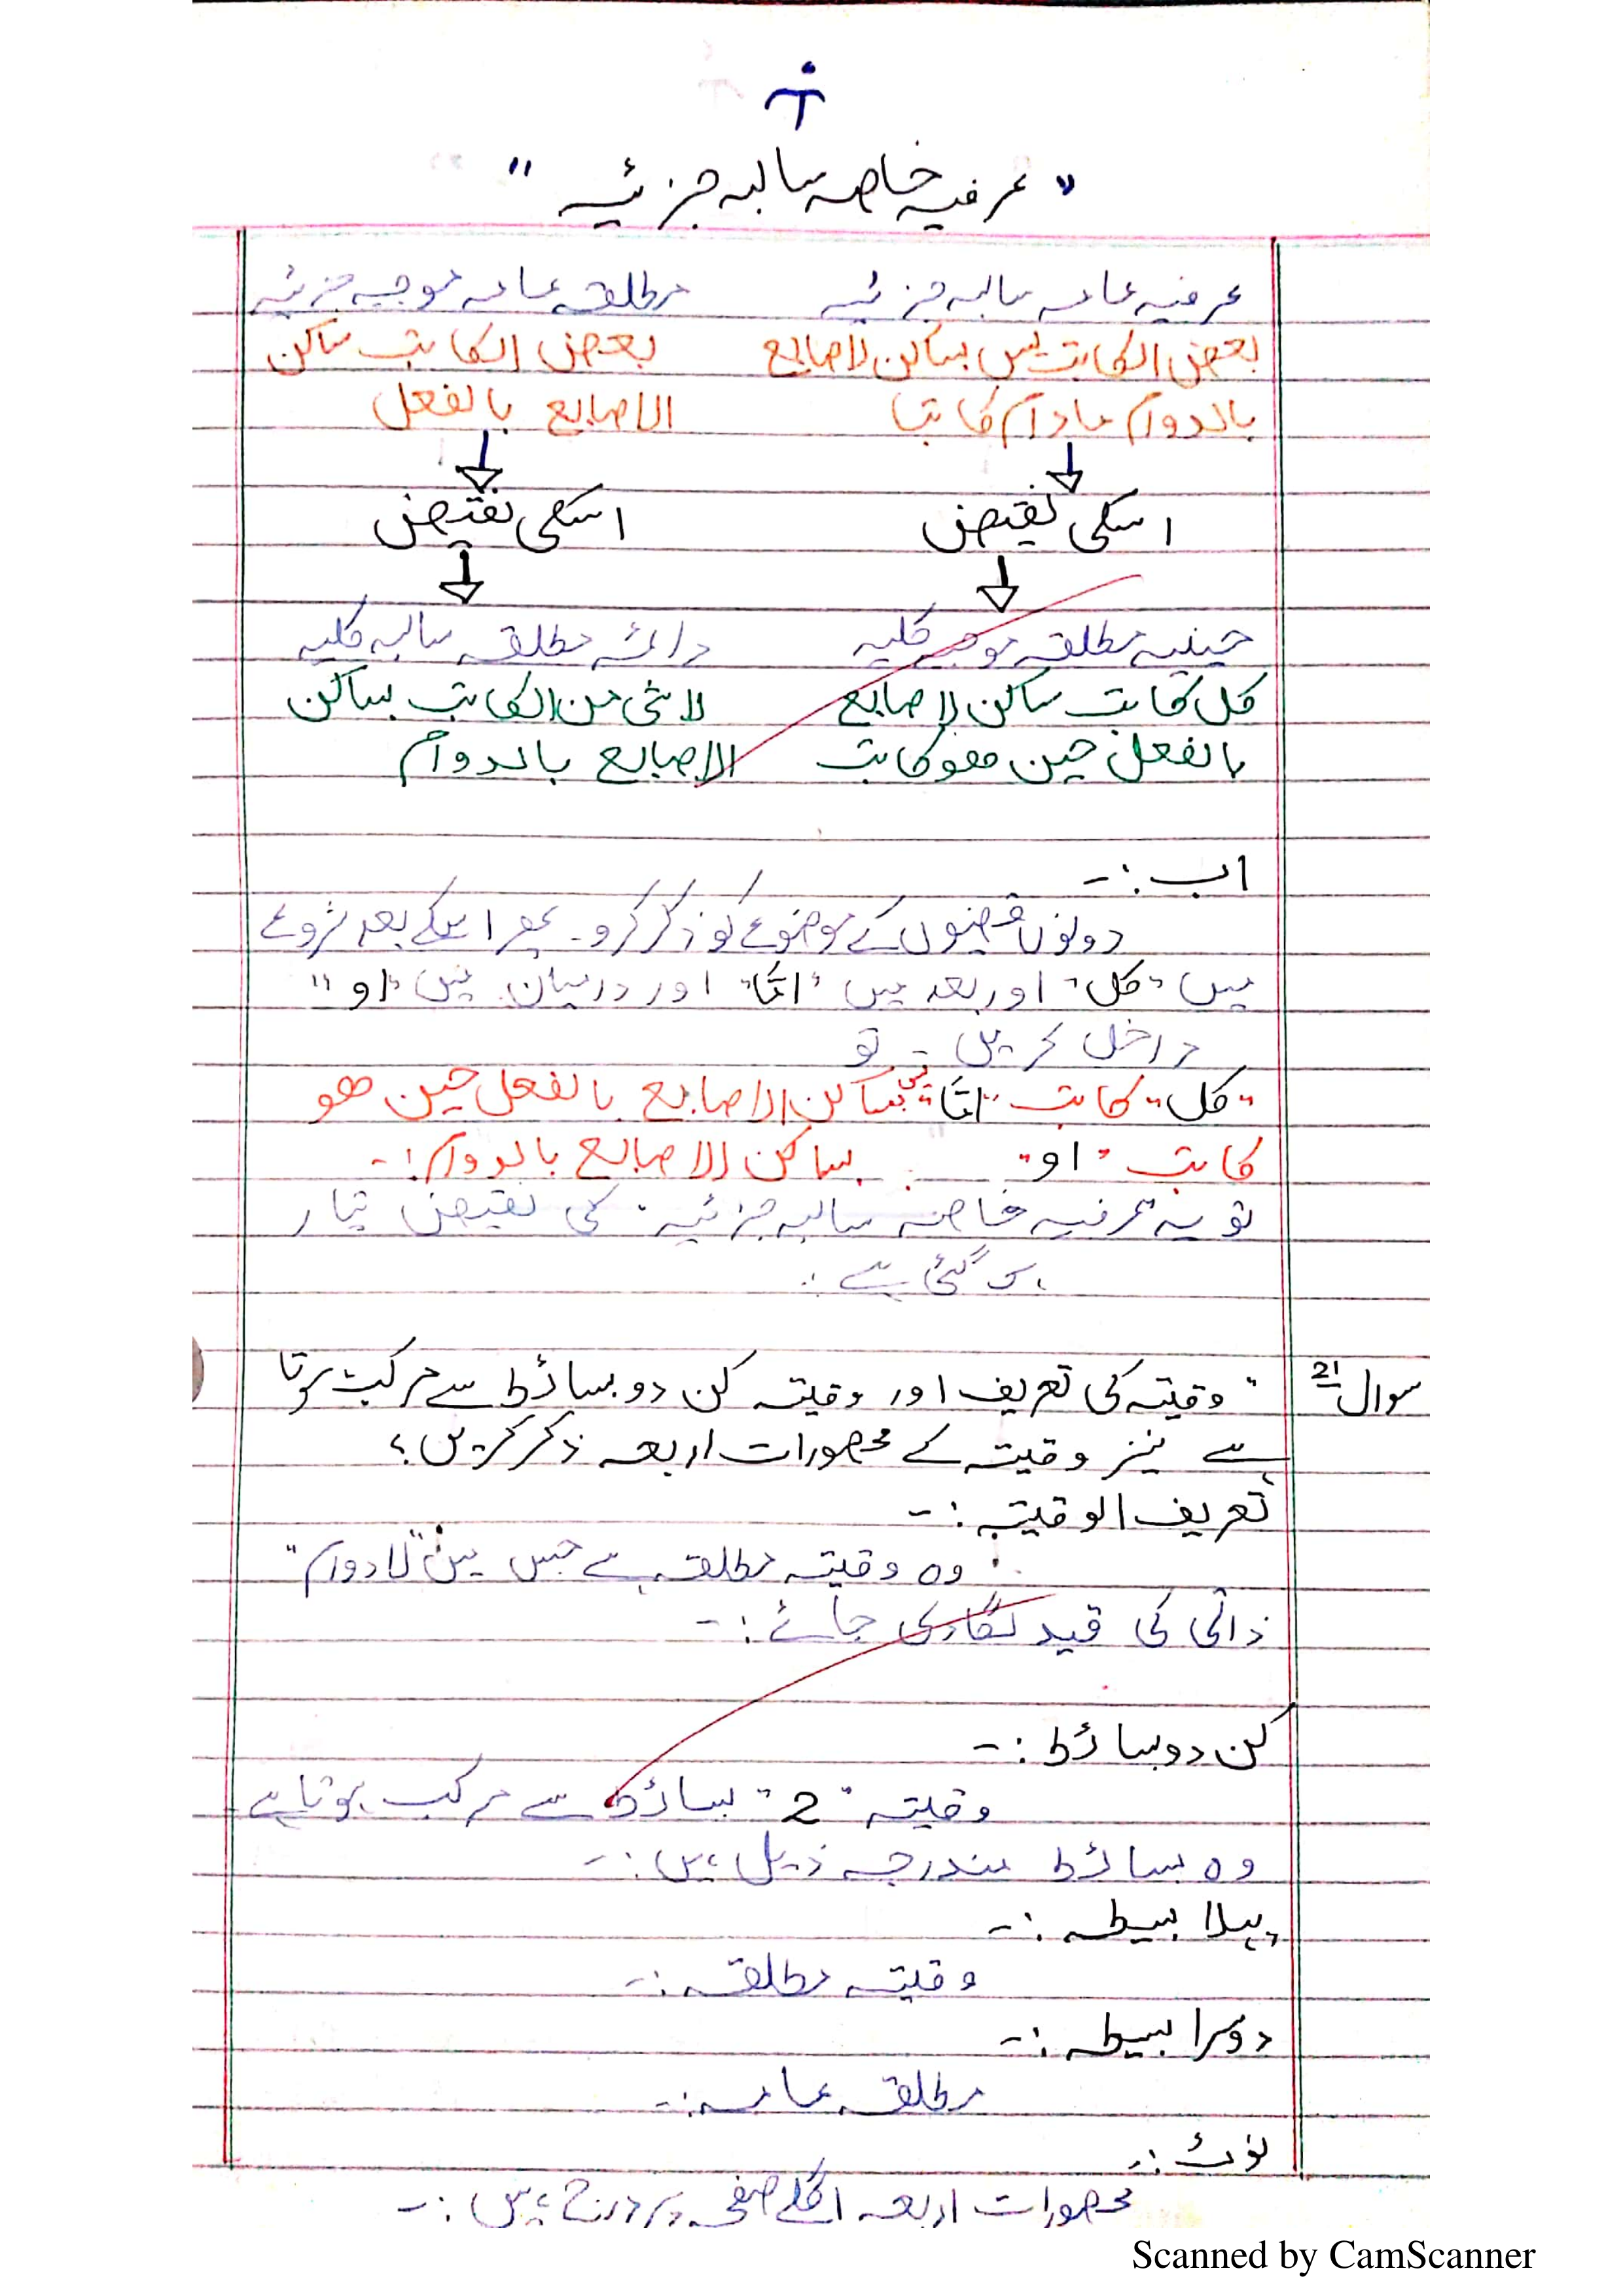 "عرفیہ خاصہ سالبہ جزئیہ"
عرفیہ عامہ سالبہ جزئیہ    مطلقہ عامہ موجبہ جزئیہ
بعض الکاتب لیس بساکن الاصابع    بعض الکاتب ساکن
بالدوام مادام کاتبا    الاصابع بالفعل
اسکی نقیض    اسکی نقیض
حینیہ مطلقہ موجبہ کلیہ    دائمہ مطلقہ سالبہ کلیہ
کل کاتب ساکن الاصابع    لا شئ من الکاتب بساکن
بالفعل حین ھو کاتب    الاصابع بالدوام
اب :-
دونوں قضیوں کے موضوع کو ذکر کرو۔ پھر اسکے بعد شروع
میں "کل" اور بعد میں "امّا" اور درمیان میں "او"
داخل کریں تو
"کل" کاتب "امّا" ساکن الاصابع بالفعل حین ھو
کاتب "او" بساکن الاصابع بالدوام :-
تو یہ عرفیہ خاصہ سالبہ جزئیہ کی نقیض تیار
ہو گئی ہے :
سوال 21 "وقیتہ کی تعریف اور وقیتہ کن دو بسائط سے مرکب ہوتا
ہے نیز وقیتہ کے محصورات اربعہ ذکر کریں؟
تعریف الوقیتہ :-
وہ وقیتہ مطلقہ ہے جس میں "لادوام"
ذاتی کی قید لگا دی جائے :-
کن دو بسائط :-
وقیتہ "2" بسائط سے مرکب ہوتا ہے
وہ بسائط مندرجہ ذیل ہیں :-
پہلا بسیطہ :-
وقیتہ مطلقہ :-
دوسرا بسیطہ :-
مطلقہ عامہ :-
نوٹ :-
محصورات اربعہ اگلے صفحہ پر درج ہیں :-
Scanned by CamScanner